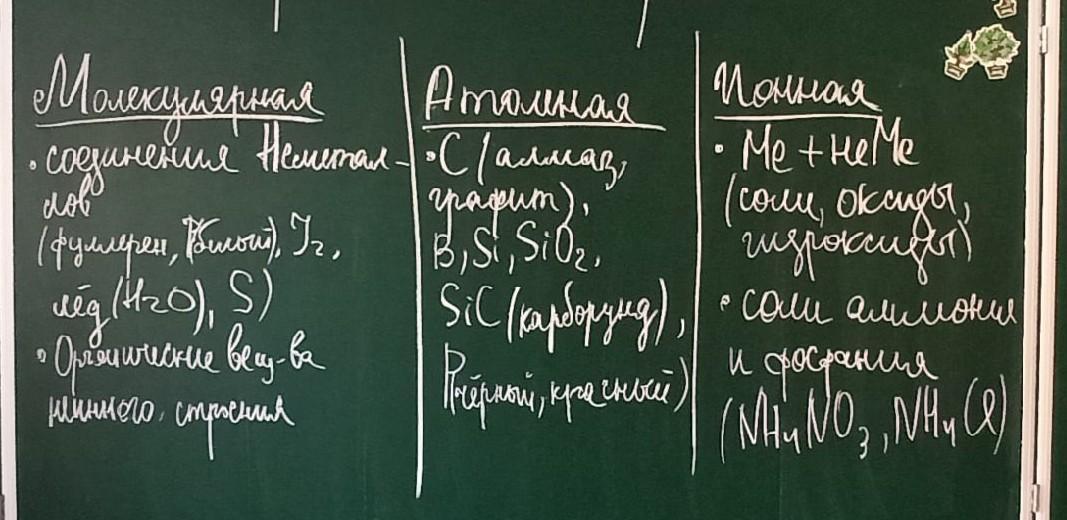 Молекулярная
• соединения Неметал-
лов
(фуллерен, Pбелый), I₂,
лёд (H₂O), S)
• Органические вещ-ва
строения
Атомная
• C (алмаз,
графит),
B, Si, SiO₂,
SiC (карборунд),
P(чёрный, красный)
Ионная
• Me + неMe
(соли, оксиды,
гидроксиды)
• соли аммония
и фосфания
(NH₄NO₃, NH₄Cl)